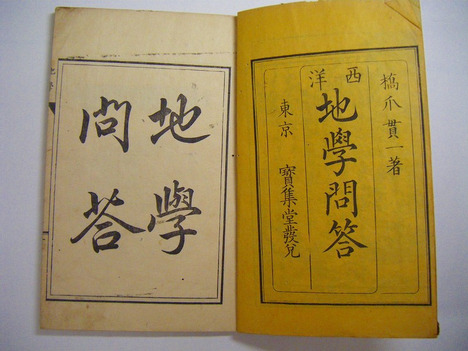 橋爪貫一著
西洋
地學問答
東京 寳集堂發兌
地學
問荅